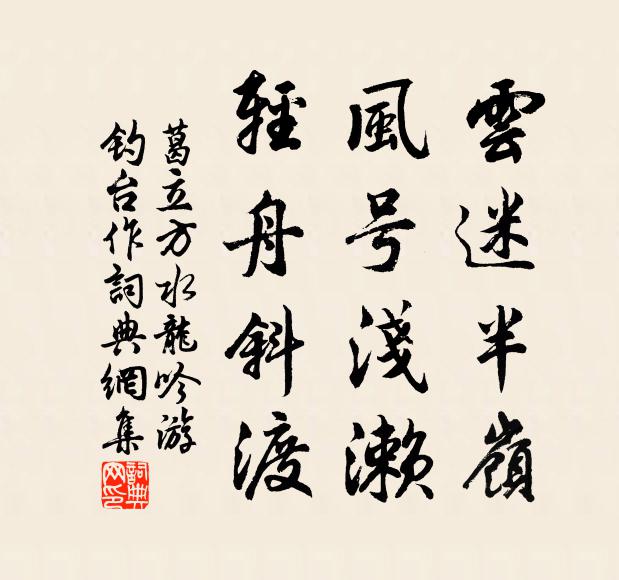 雲迷半嶺
風号淺濑
輕舟斜渡
葛立方水龍吟游
釣台作詞典網集
詞典网印